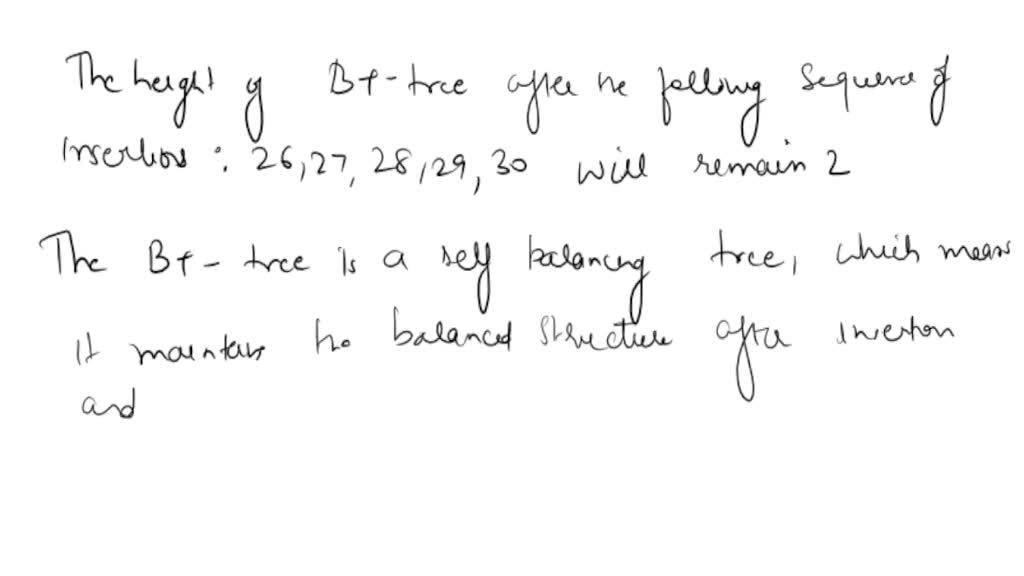 The height of B+-tree after the following sequence of
insertions : 26, 27, 28, 29, 30 will remain 2
The B+ - tree is a self balancing tree, which means
it maintains the balanced structure after insertion
and